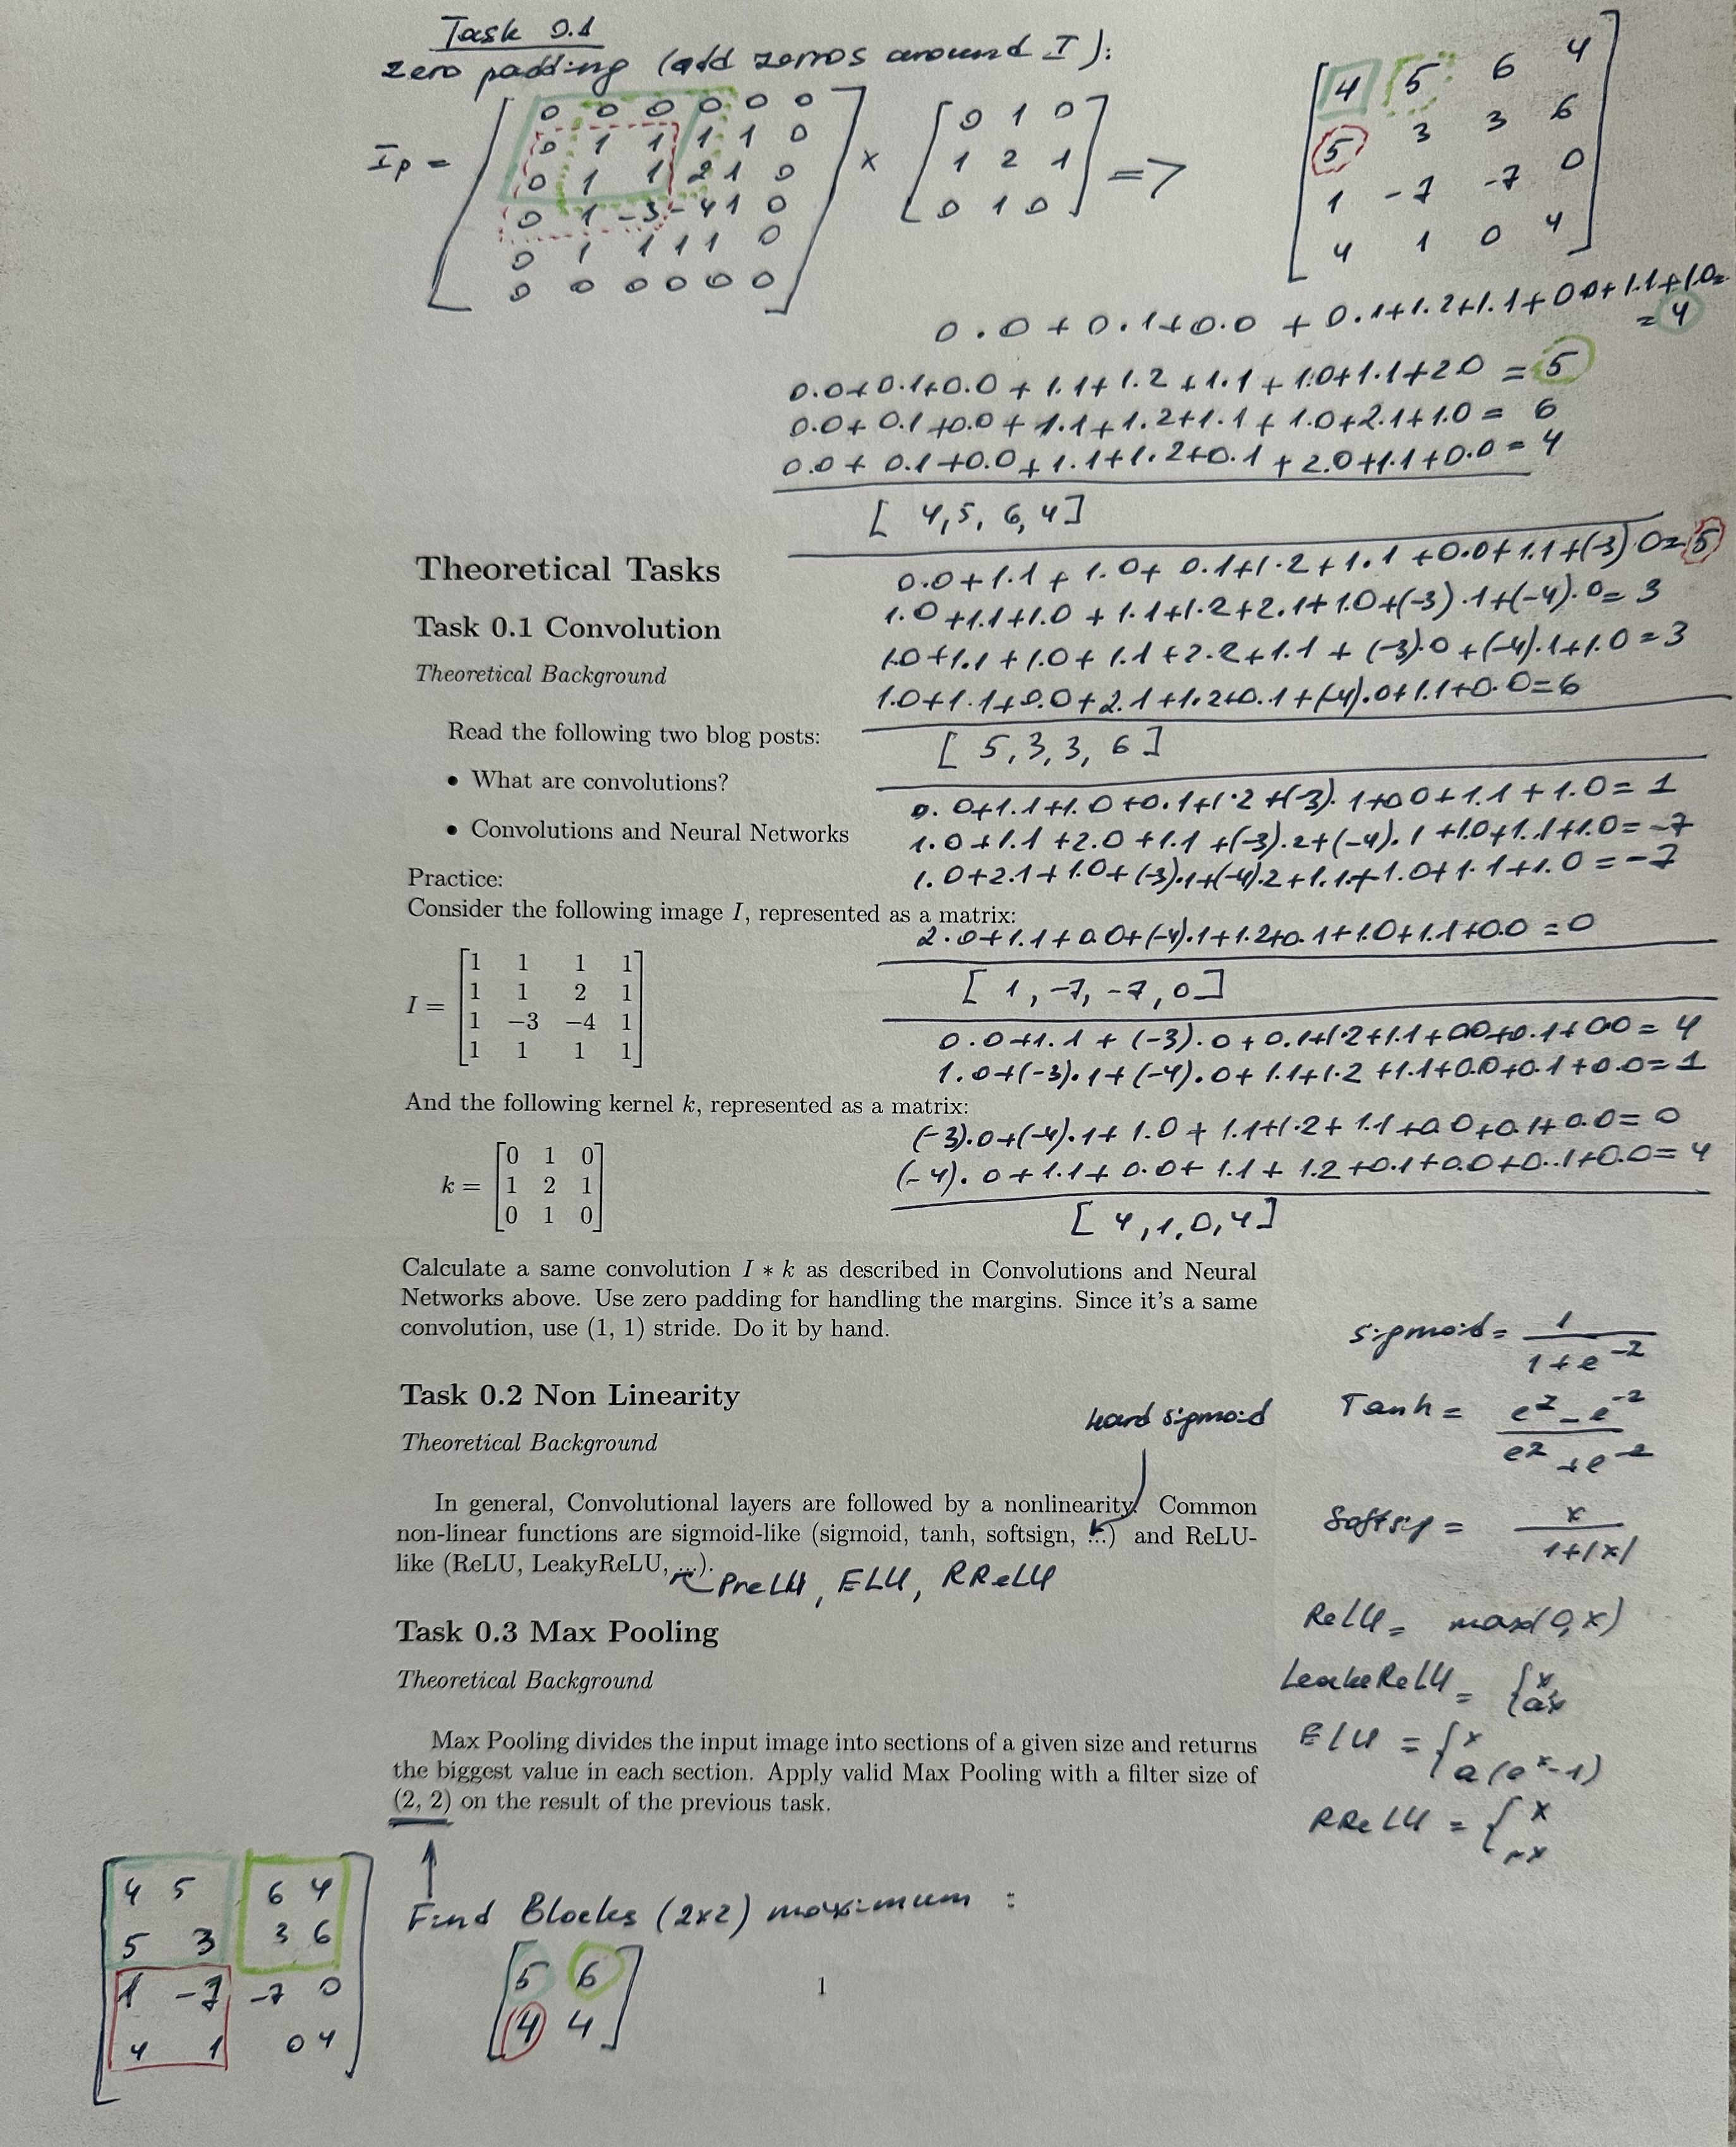 Task 0.1
Zero padding (add zerros around I):
Ip = [ 0 0 0 0 0 0
0 1 1 1 1 0
0 1 1 2 1 0
0 1 -3 -4 1 0
0 1 1 1 1 0
0 0 0 0 0 0 ]
x [ 0 1 0
1 2 1
0 1 0 ] =>
[ 4 5 6 4
5 3 3 6
1 -7 -7 0
4 1 0 4 ]
0.0 + 0.1+0.0 + 0.1+1.2+1.1+0.0+1.1+1.0=
= 4
0.0+0.1+0.0 + 1.1+1.2+1.1+1.0+1.1+2.0 = 5
0.0+0.1+0.0+1.1+1.2+1.1+1.0+2.1+1.0 = 6
0.0+0.1+0.0+1.1+1.2+0.1+2.0+1.1+0.0 = 4
[ 4,5, 6,4]
0.0+1.1+1.0+0.1+1.2+1.1+0.0+1.1+(-3).0=5
1.0+1.1+1.0+1.1+1.2+2.1+1.0+(-3).1+(-4).0=3
1.0+1.1+1.0+1.1+2.2+1.1+(-3).0+(-4).1+1.0=3
1.0+1.1+0.0+2.1+1.2+0.1+(-4).0+1.1+0.0=6
[ 5,3,3, 6]
0.0+1.1+1.0+0.1+1.2+(-3).1+0.0+1.1+1.0=1
1.0+1.1+2.0+1.1+(-3).2+(-4).1+1.0+1.1+1.0=-7
1.0+2.1+1.0+(-3).1+(-4).2+1.1+1.0+1.1+1.0=-7
2.0+1.1+0.0+(-4).1+1.2+0.1+1.0+1.1+0.0=0
[ 1,-7,-7,0]
0.0+1.1+(-3).0+0.1+1.2+1.1+0.0+0.1+0.0=4
1.0+(-3).1+(-4).0+1.1+1.2+1.1+0.0+0.1+0.0=1
(-3).0+(-4).1+1.0+1.1+1.2+1.1+0.0+0.1+0.0=0
(-4).0+1.1+0.0+1.1+1.2+0.1+0.0+0..1+0.0=4
[ 4,1,0,4]
Theoretical Tasks
Task 0.1 Convolution
Theoretical Background
Read the following two blog posts:
• What are convolutions?
• Convolutions and Neural Networks
Practice:
Consider the following image I, represented as a matrix:
I = [ 1 1 1 1
1 1 2 1
1 −3 −4 1
1 1 1 1 ]
And the following kernel k, represented as a matrix:
k = [ 0 1 0
1 2 1
0 1 0 ]
Calculate a same convolution I ∗ k as described in Convolutions and Neural
Networks above. Use zero padding for handling the margins. Since it's a same
convolution, use (1, 1) stride. Do it by hand.
Task 0.2 Non Linearity
Theoretical Background
hard sigmoid
In general, Convolutional layers are followed by a nonlinearity. Common
non-linear functions are sigmoid-like (sigmoid, tanh, softsign, ...) and ReLU-
like (ReLU, LeakyReLU, ...).
PreLU, ELU, RReLU
sigmoid = 1 / 1+e^-z
Tanh = e^z - e^-z / e^z + e^-z
Softsig = x / 1+|x|
ReLU = max(0,x)
LeakeReLU = { x, ax
ELU = { x a(e^x-1)
RReLU = { x rx
Task 0.3 Max Pooling
Theoretical Background
Max Pooling divides the input image into sections of a given size and returns
the biggest value in each section. Apply valid Max Pooling with a filter size of
(2, 2) on the result of the previous task.
[ 4 5 6 4
5 3 3 6
1 -7 -7 0
4 1 0 4 ]
Find Blocks (2x2) maximum :
[ 5 6
4 4 ]
1